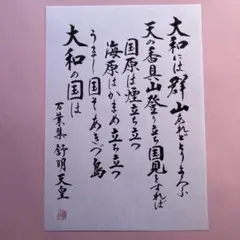 大和には群山あれどとりよろふ
天の香具山登り立ち国見をすれば
国原は煙立ち立つ
海原はかまめ立ち立つ
うまし国そあきづ島
大和の国は
万葉集 舒明天皇